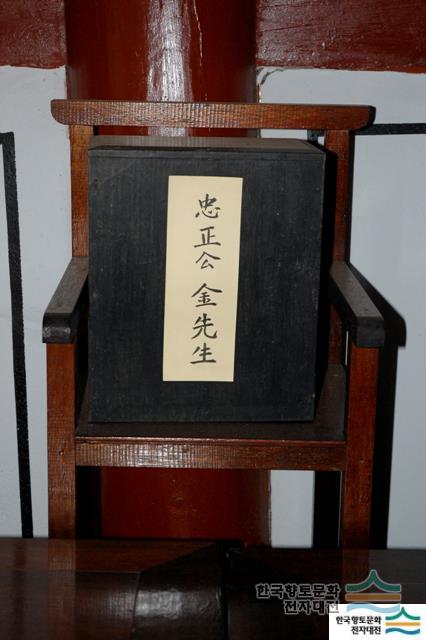 忠正公 金先生
한국향토문화
전자대전
한국향토문화
전자대전